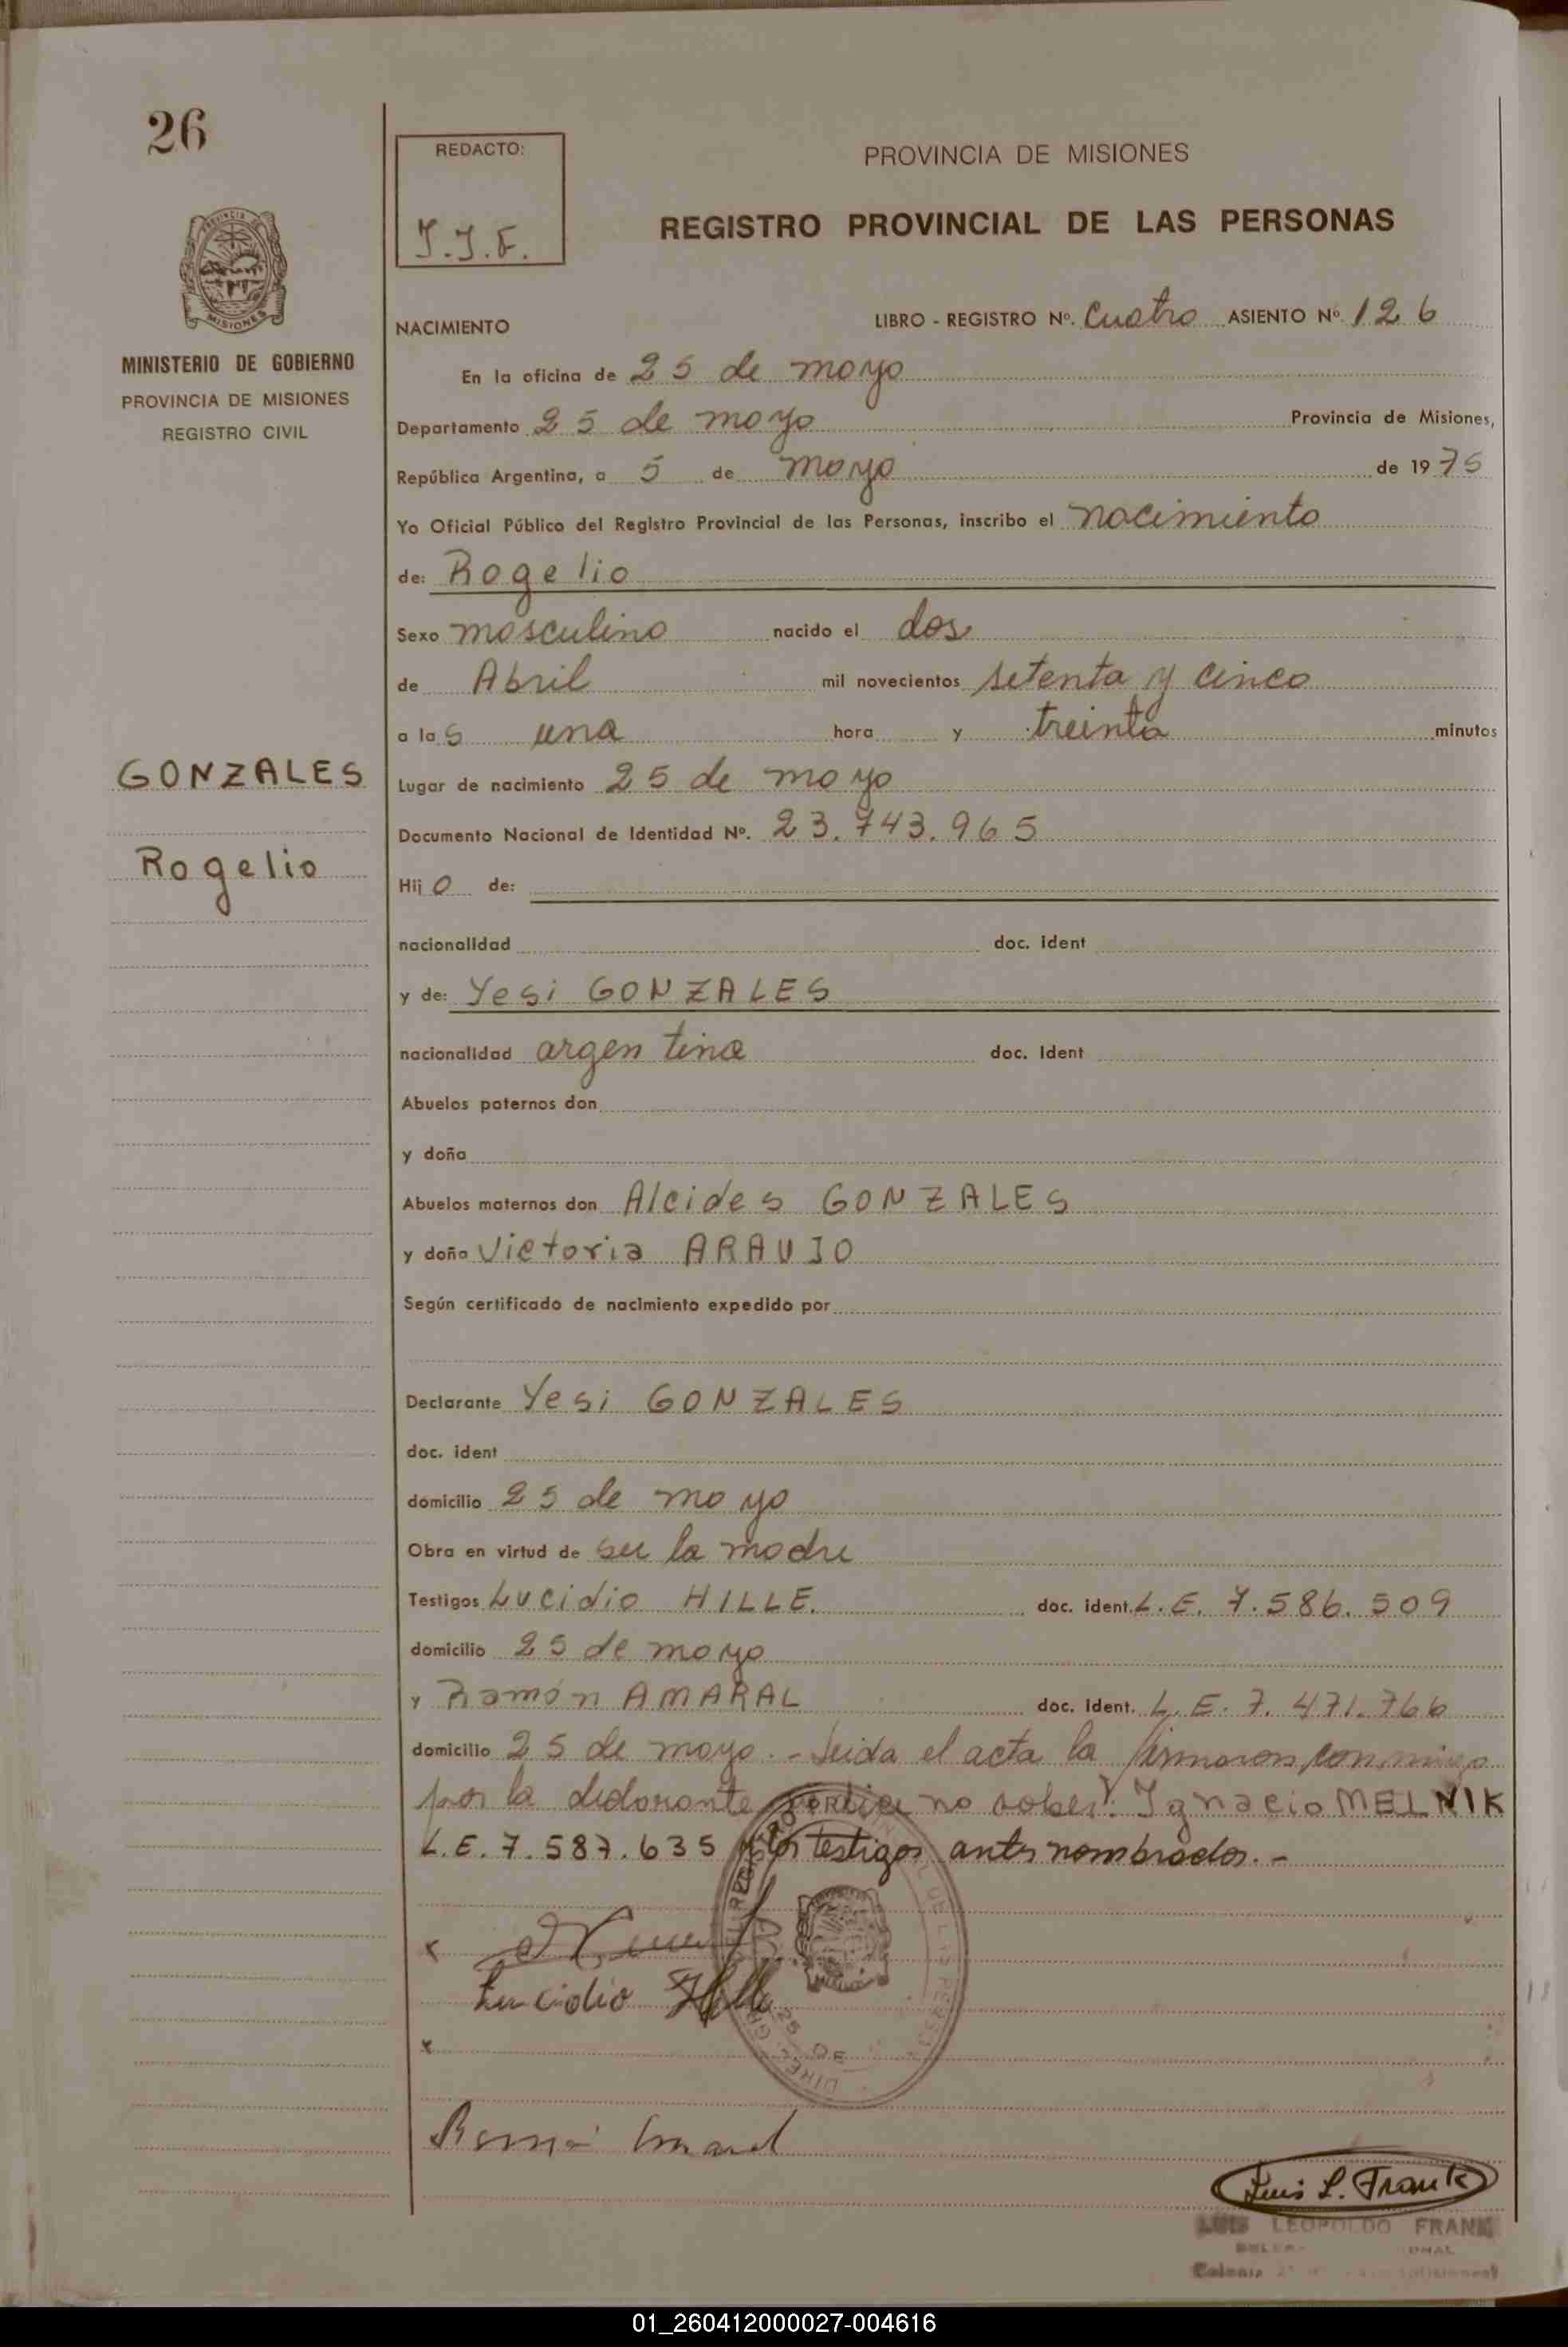 26
REDACTO:
J.J.F.
PROVINCIA DE MISIONES
REGISTRO PROVINCIAL DE LAS PERSONAS
PROVINCIA DE
MISIONES
MINISTERIO DE GOBIERNO
PROVINCIA DE MISIONES
REGISTRO CIVIL
NACIMIENTO
LIBRO - REGISTRO Nº. Cuatro ASIENTO Nº. 126
En la oficina de 25 de mayo
Departamento 25 de mayo Provincia de Misiones,
República Argentina, a 5 de mayo de 1975
Yo Oficial Público del Registro Provincial de las Personas, inscribo el nacimiento
de: Rogelio
Sexo masculino nacido el dos
de Abril mil novecientos setenta y cinco
a las una hora y treinta minutos
GONZALES
Rogelio
Lugar de nacimiento 25 de mayo
Documento Nacional de Identidad Nº. 23.743.965
Hijo de:
nacionalidad doc. ident
y de: Yesi GONZALES
nacionalidad argentina doc. ident
Abuelos paternos don
y doña
Abuelos maternos don Alcides GONZALES
y doña Victoria ARAUJO
Según certificado de nacimiento expedido por
Declarante Yesi GONZALES
doc. ident
domicilio 25 de mayo
Obra en virtud de ser la madre
Testigos Lucidio HILLE. doc. ident. L.E. 7.586.509
domicilio 25 de mayo
y Ramón AMARAL doc. ident. L.E. 7.471.766
domicilio 25 de mayo.- Leida el acta la firmaron conmigo
por la declarante no saber. Ignacio MELNIK
L.E. 7.587.635 y los testigos antes nombrados.-
x
Lucidio Hille
x
25 DE
Ramón Amaral
Luis L. Frank
LUIS LEOPOLDO FRANK
01_260412000027-004616